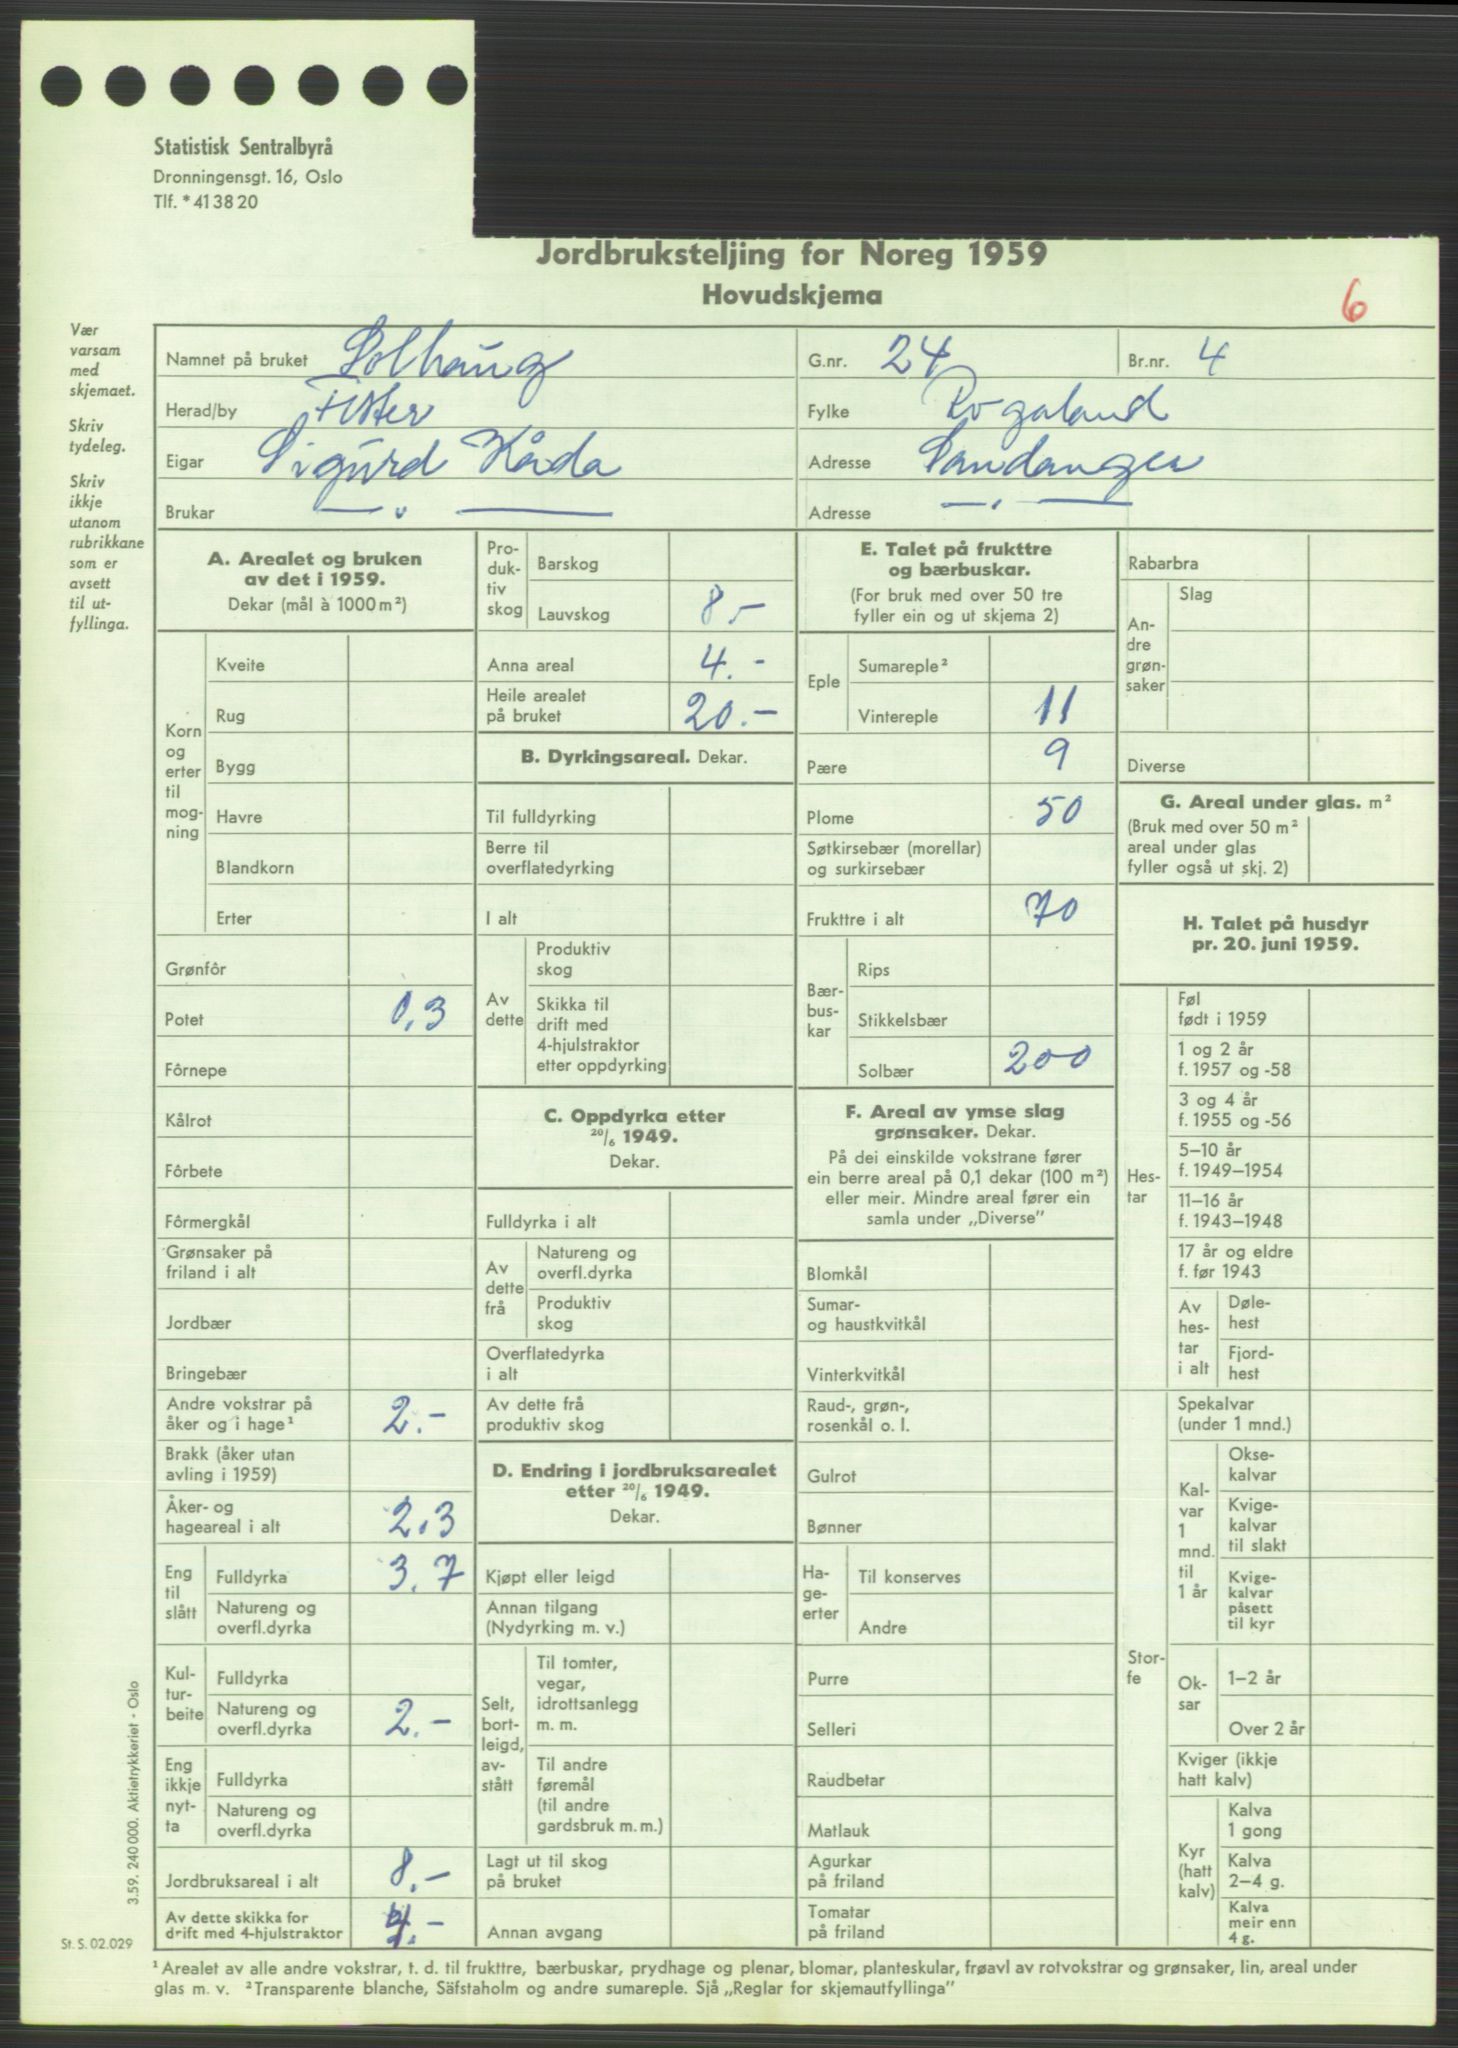 Statistisk Sentralbyrå
Dronningensgt. 16, Oslo
Tlf. * 41 38 20
Jordbruksteljing for Noreg 1959
Hovudskjema
6
Vær
varsam
med
skjemaet.
Skriv
tydeleg.
Skriv
ikkje
utanom
rubrikkane
som er
avsett
til ut-
fyllinga.
Namnet på bruket Solhaug G.nr. 24 Br.nr. 4
Herad/by Fister Fylke Rogaland
Eigar Sigurd Kåda Adresse Sandanger
Brukar — " — Adresse — " —
A. Arealet og bruken
av det i 1959.
Dekar (mål à 1000 m²)
Korn
og
erter
til
mog-
ning
Kveite
Rug
Bygg
Havre
Blandkorn
Erter
Grønfôr
Potet 0,3
Fôrnepe
Kålrot
Fôrbete
Fôrmergkål
Grønsaker på
friland i alt
Jordbær
Bringebær
Andre vokstrar på
åker og i hage¹ 2.-
Brakk (åker utan
avling i 1959)
Åker- og
hageareal i alt 2,3
Eng
til
slått
Fulldyrka 3,7
Natureng og
overfl.dyrka
Kul-
tur-
beite
Fulldyrka
Natureng og
overfl.dyrka 2.-
Eng
ikkje
nyt-
ta
Fulldyrka
Natureng og
overfl.dyrka
Jordbruksareal i alt 8.-
Av dette skikka for
drift med 4-hjulstraktor 4.-
Pro-
duk-
tiv
skog
Barskog
Lauvskog 8.-
Anna areal 4.-
Heile arealet
på bruket 20.-
B. Dyrkingsareal. Dekar.
Til fulldyrking
Berre til
overflatedyrking
I alt
Av
dette
Produktiv
skog
Skikka til
drift med
4-hjulstraktor
etter oppdyrking
C. Oppdyrka etter
²⁰/₆ 1949.
Dekar.
Fulldyrka i alt
Av
dette
frå
Natureng og
overfl.dyrka
Produktiv
skog
Overflatedyrka
i alt
Av dette frå
produktiv skog
D. Endring i jordbruksarealet
etter ²⁰/₆ 1949.
Dekar.
Kjøpt eller leigd
Annan tilgang
(Nydyrking m. v.)
Selt,
bort-
leigd,
av-
stått
Til tomter,
vegar,
idrottsanlegg
m. m.
Til andre
føremål
(til andre
gardsbruk m. m.)
Lagt ut til skog
på bruket
Annan avgang
E. Talet på frukttre
og bærbuskar.
(For bruk med over 50 tre
fyller ein og ut skjema 2)
Eple
Sumareple²
Vintereple 11
Pære 9
Plome 50
Søtkirsebær (morellar)
og surkirsebær
Frukttre i alt 70
Bær-
bus-
kar
Rips
Stikkelsbær
Solbær 200
F. Areal av ymse slag
grønsaker. Dekar.
På dei einskilde vokstrane fører
ein berre areal på 0,1 dekar (100 m²)
eller meir. Mindre areal fører ein
samla under „Diverse”
Blomkål
Sumar-
og haustkvitkål
Vinterkvitkål
Raud-, grøn-,
rosenkål o. l.
Gulrot
Bønner
Ha-
ge-
erter
Til konserves
Andre
Purre
Selleri
Raudbetar
Matlauk
Agurkar
på friland
Tomatar
på friland
Rabarbra
An-
dre
grøn-
saker
Slag
Diverse
G. Areal under glas. m²
(Bruk med over 50 m²
areal under glas
fyller også ut skj. 2)
H. Talet på husdyr
pr. 20. juni 1959.
Hes-
tar
Føl
født i 1959
1 og 2 år
f. 1957 og -58
3 og 4 år
f. 1955 og -56
5–10 år
f. 1949–1954
11–16 år
f. 1943–1948
17 år og eldre
f. før 1943
Av
hes-
tar
i alt
Døle-
hest
Fjord-
hest
Stor-
fe
Spekalvar
(under 1 mnd.)
Kal-
var
1
mnd.
til
1 år
Okse-
kalvar
Kvige-
kalvar
til slakt
Kvige-
kalvar
påsett
til kyr
Ok-
sar
1–2 år
Over 2 år
Kviger (ikkje
hatt kalv)
Kyr
(hatt
kalv)
Kalva
1 gong
Kalva
2–4 g.
Kalva
meir enn
4 g.
3.59. 240 000. Aktietrykkeriet - Oslo
St. S. 02.029
¹ Arealet av alle andre vokstrar, t. d. til frukttre, bærbuskar, prydhage og plenar, blomar, planteskular, frøavl av rotvokstrar og grønsaker, lin, areal under
glas m. v. ² Transparente blanche, Säfstaholm og andre sumareple. Sjå „Reglar for skjemautfyllinga”